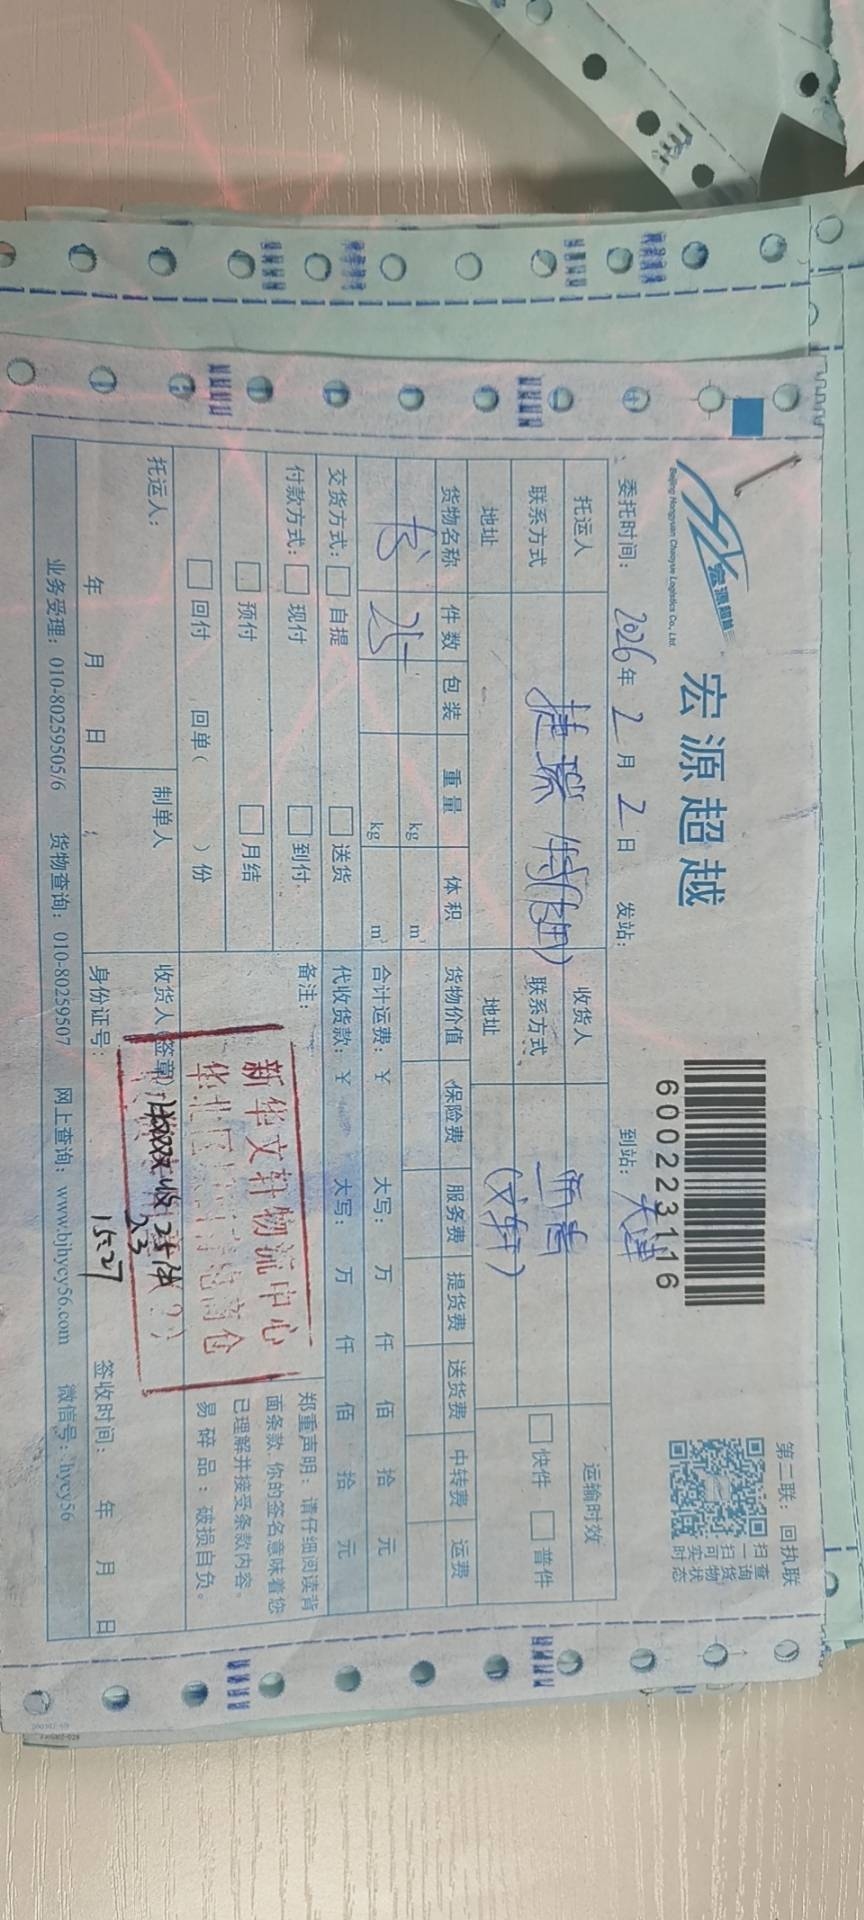 宏源超越
Beijing Hongyuan Chaoyue Logistics Co., Ltd.
宏源超越
6000223116
第二联：回执联
扫一扫
查询货物
可实时状态
委托时间： 2026 年 2 月 2 日 发站： 到站： 天津
托运人 捷瑞 收货人 运输时效
联系方式 联系方式 快件 普件
地址 地址 (文轩)
货物名称 件数 包装 重量 体积 货物价值 保险费 服务费 提货费 送货费 中转费 运费
书 25 kg m³
kg m³ 合计运费：¥ 大写： 万 仟 佰 拾 元
交货方式： 自提 送货 代收货款：¥ 大写： 万 仟 佰 拾 元
付款方式： 现付 到付 备注：
预付 月结
回付 回单（ ）份
郑重声明：请仔细阅读背
面条款，你的签名意味着您
已理解并接受条款内容。
易碎品：破损自负。
新华文轩物流中心
华北区
电商仓
托运人： 制单人 收货人(签章)
收25件
2.3
15:27
年 月 日 身份证号： 签收时间： 年 月 日
业务受理：010-80259505/6 货物查询：010-80259507 网上查询：www.bjhycy56.com 微信号：hycy56